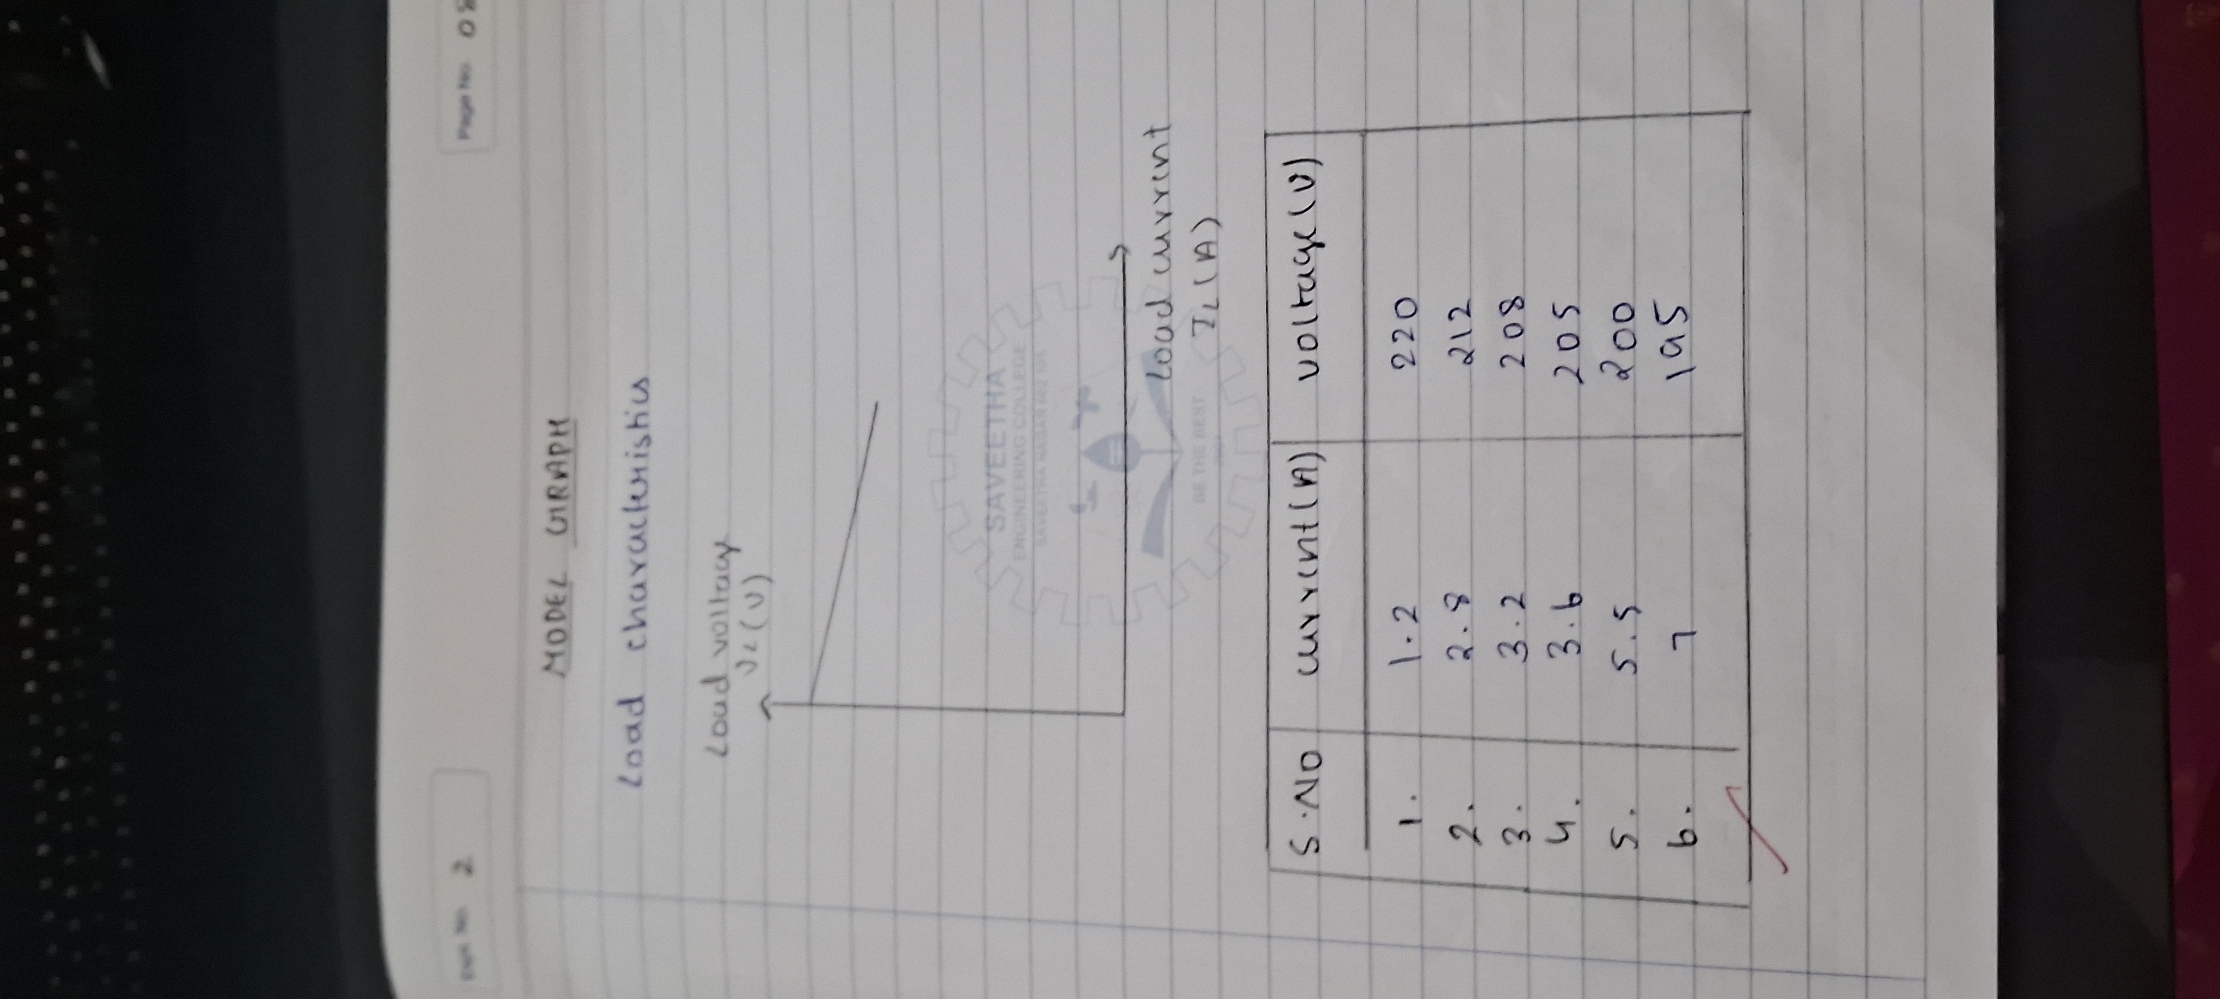 Expt. No. 2
Page No. 08
MODEL GRAPH
Load characteristics
Load voltage
VL(V)
SAVEETHA
ENGINEERING COLLEGE
Load current
BE THE BEST
IL (A)
S.NO current(A) voltage(V)
1. 1.2 220
2. 2.8 212
3. 3.2 208
4. 3.6 205
5. 5.5 200
6. 7 195